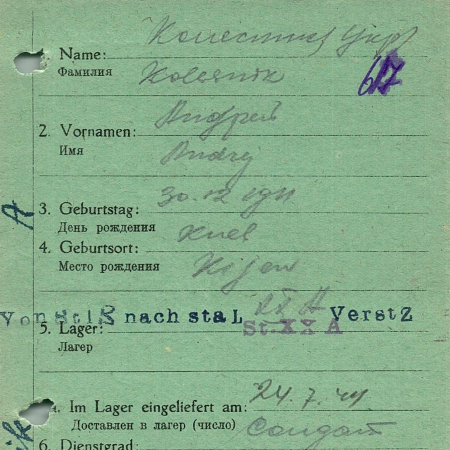 Name:
Фамилия
Kolesnik
617
2. Vornamen:
Имя
Андрей
Andrej
3. Geburtstag: 30.12.1911
День рождения
Киев
4. Geburtsort:
Место рождения
Kijew
nach stal
Verstz
5. Lager: St. XX A
Лагер
Im Lager eingeliefert am: 24.7.44
Доставлен в лагер (число)
Солдат
6. Dienstgrad